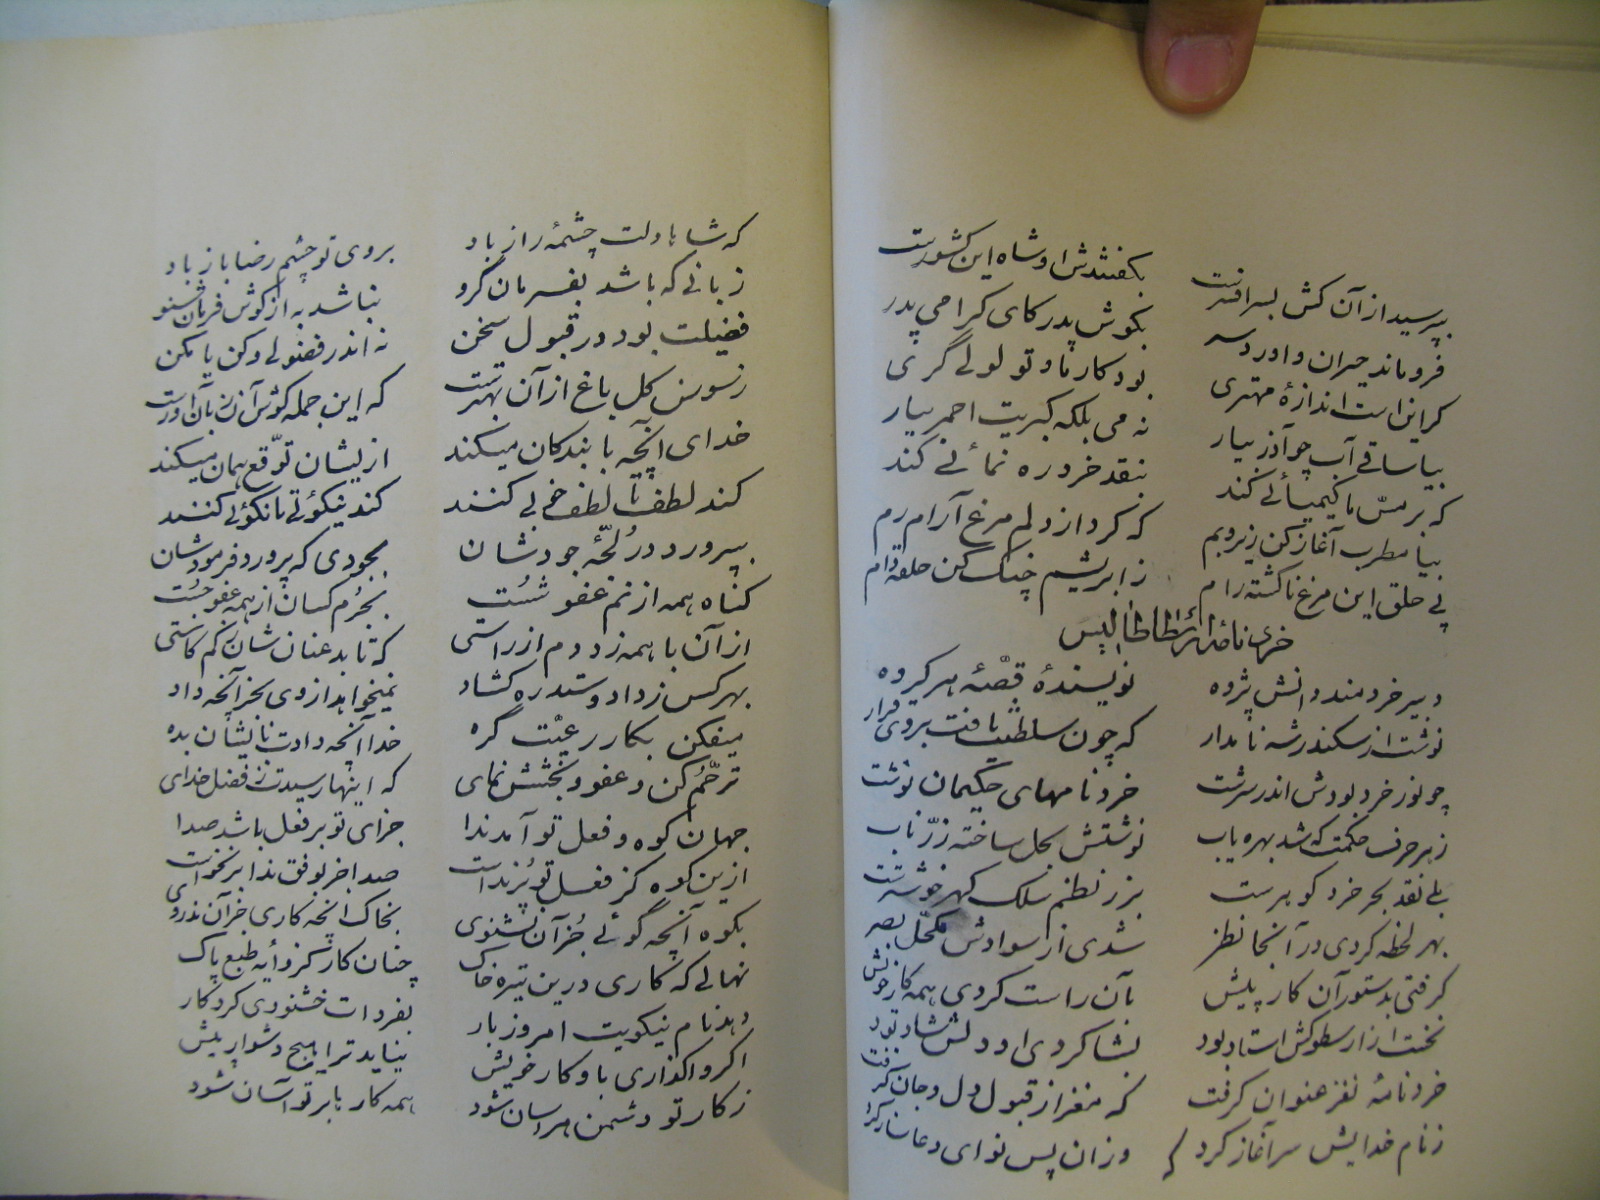 بپرسید از آن کش بسر افسرست بگفتندش او شاه این کشورست
فروماند حیران و آورد سر بگوش پدر کای گرامی پدر
گر اینراست اندازهٔ مهتری بود کار ما و تو لولی گری
بیا ساقی آب چو آذر بیار نه می بلکه کبریت احمر بیار
که بر مسّ ما کیمیائی کند بنقد خرد ره نمائی کند
بیا مطرب آغاز کن زیر و بم که کرد از دلم مرغ آرام رم
پی حلق این مرغ ناگشته رام ز ابریشم چنگ کن حلقه دام
خردنامهٔ ارسطاطالیس
دبیر خردمند دانش پژوه نویسندهٔ قصّهٔ هر گروه
نوشت از سکندر شه نامدار که چون سلطنت یافت بروی قرار
چو نور خرد بودش اندر سرشت خردنامهای حکیمان نوشت
ز هر حرف حکمت که شد بهره یاب نوشتش بحل ساخته زرّ ناب
بلی نقد بحر خرد گوهرست بزر نظم سلک گهر خوشترست
بهر لحظه کردی در آنجا نظر شدی از سوادش مکحّل بصر
گرفتی بدستور آن کار پیش بآن راست کردی همه کار خویش
نخست از ارسطو کش استاد بود بشاگردی او دلش شاد بود
خردنامهٔ نغز عنوان گرفت که مغز از قبول دل و جان گرفت
ز نام خدایش سرآغاز کرد وزان پس نوای دعا ساز کرد
که شاها دلت چشمهٔ راز باد بروی تو چشم رضا باز باد
زبانی که باشد بفرمان گرو نباشد به از گوش فرمان شنو
فضیلت بود در قبول سخن نه اندر فضولی و کن یا مکن
ز سوسن گل باغ از آن بهترست که این جمله گوش آن زبان آورست
خدای آنچه با بندگان میکند ازیشان توقّع همان میکند
کند لطف تا لطف خویی کنند کند نیکوئی تا نکوئی کنند
بپرورد در لجّهٔ جودشان بجودی که پرورد فرمودشان
گناه همه از نم عفو شست بجرم کسان از همه عفو جست
از آن با همه زد دم از راستی که تابد عنانشان ز کم کاستی
بهر کس ز داد و ستد ره گشاد نمیخواهد از وی بجز آنچه داد
میفکن بکار رعیّت گره خدا آنچه دادت بایشان بده
ترحّم کن و عفو و بخشش نمای که اینها رسیدت ز فضل خدای
جهان کوه و فعل تو آمد ندا جزای تو بر فعل باشد صدا
ازین کوه کز فعل تو پر نداست صدا جز بوفق ندا برنخاست
بکوه آنچه گوئی جز آن نشنوی بخاک آنچه کاری جز آن ندروی
نهالی که کاری درین تیره خاک چنان کار کز وایه طبع پاک
دهد نام نیکویت امروز بار بفردات خشنودی کردگار
اگر واگذاری باو کار خویش نیاید ترا هیچ دشوار پیش
ز کار تو دشمن هراسان شود همه کارها بر تو آسان شود